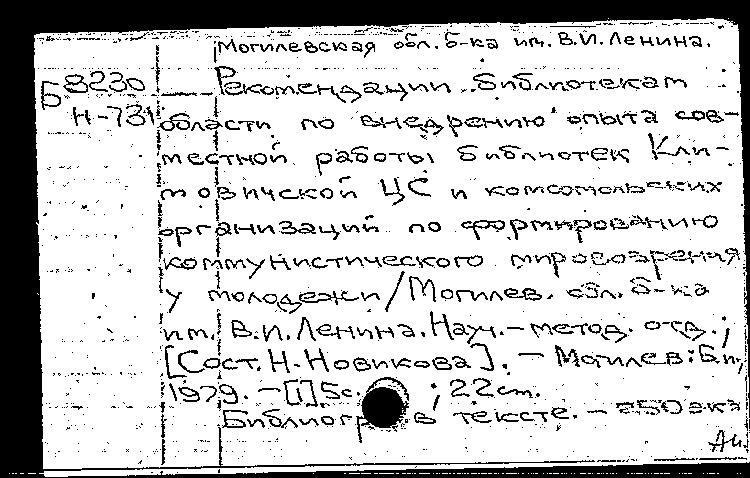 Могилевская обл. б-ка им. В.И. Ленина.
Б 8230
Н-731
Рекомендации библиотекам
области по внедрению опыта сов-
местной работы библиотек Кли-
мовичской ЦС и комсомольских
организаций по формированию
коммунистического мировоззрения
у молодежи/Могилев. обл. б-ка
им. В.И. Ленина. Науч.-метод. отд.;
[Сост. Н. Новикова]. - Могилев: Б.и.,
1979. - [1] 5с. ; 22см.
Библиогр в тексте. - 250 экз